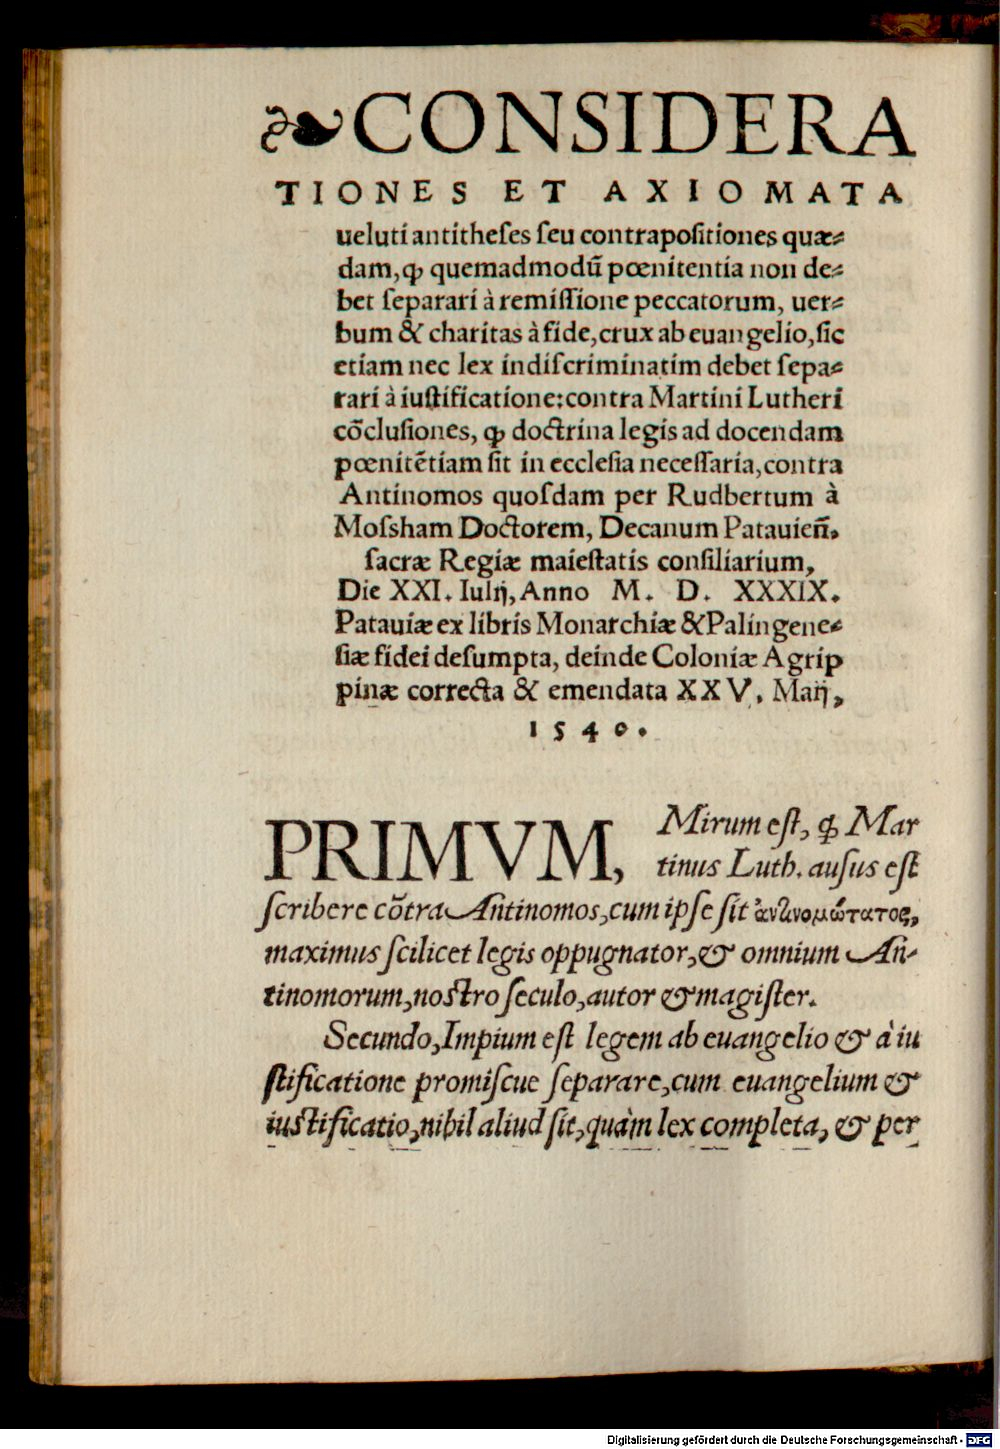 ❧CONSIDERA
TIONES ET AXIOMATA
ueluti antitheſes ſeu contrapoſitiones quæ⸗
dam, ꝙ quemadmodū pœnitentia non de⸗
bet ſeparari à remiſſione peccatorum, uer⸗
bum & charitas à fide, crux ab euangelio, ſic
etiam nec lex indiſcriminatim debet ſepa⸗
rari à iuſtificatione: contra Martini Lutheri
cõcluſiones, ꝙ doctrina legis ad docendam
pœnitẽtiam ſit in eccleſia neceſſaria, contra
Antinomos quoſdam per Rudbertum à
Moſsham Doctorem, Decanum Patauieñ,
ſacræ Regiæ maieſtatis conſiliarium,
Die XXI. Iulij, Anno M. D. XXXIX.
Patauiæ ex libris Monarchiæ & Palingene⸗
ſiæ fidei deſumpta, deinde Coloniæ Agrip
pinæ correcta & emendata XXV, Maij,
1540.
PRIMVM, Mirum eſt, ꝙ Mar
tinus Luth. auſus eſt
ſcribere cõtra Antinomos, cum ipſe ſit ἀντινομώτατος,
maximus ſcilicet legis oppugnator, & omnium An-
tinomorum, noſtro ſeculo, autor & magiſter.
Secundo, Impium eſt legem ab euangelio & à iu
ſtificatione promiſcue ſeparare, cum euangelium &
iuſtificatio, nihil aliud ſit, quàm lex completa, & per
Digitalisierung gefördert durch die Deutsche Forschungsgemeinschaft - DFG